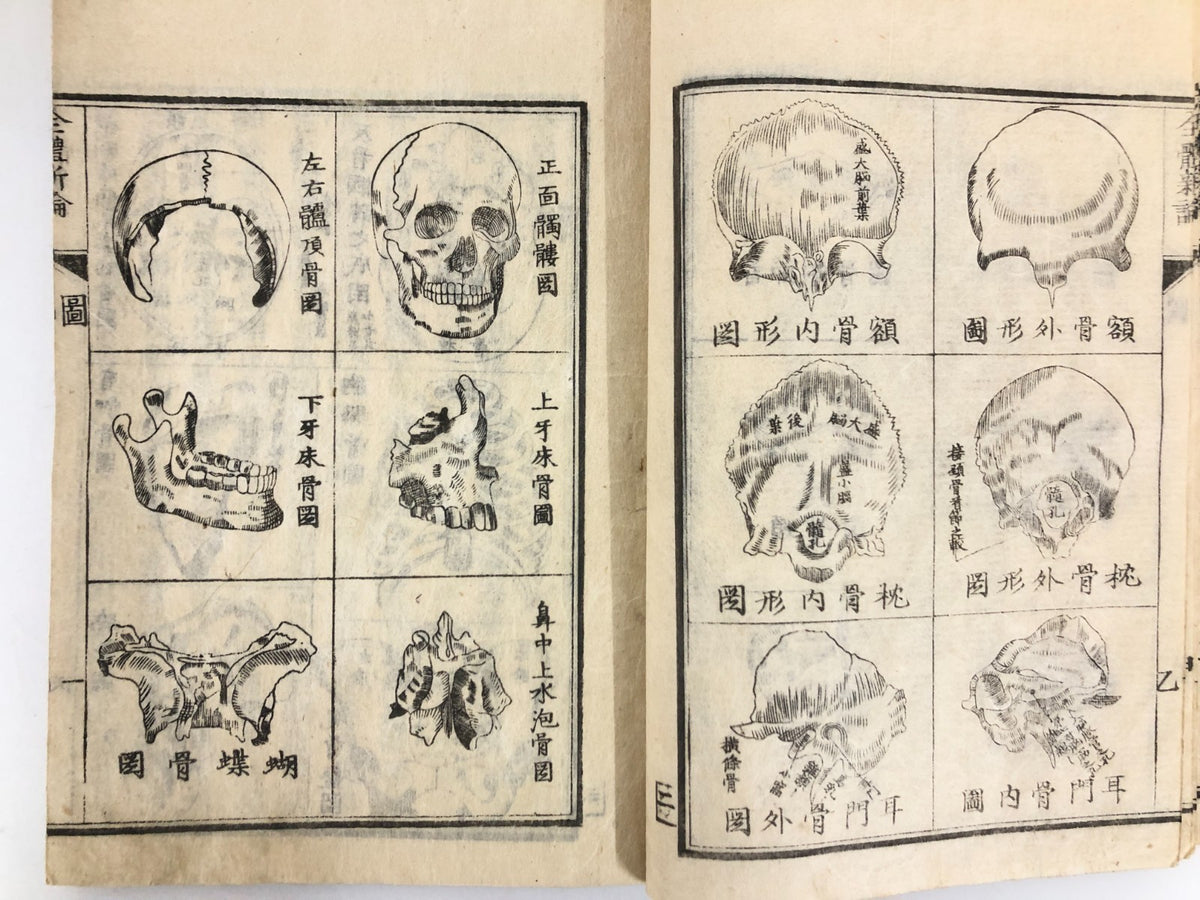 全體新論
圖
額骨外形圖
額骨內形圖
盛大腦前葉
枕骨外形圖
髓孔
枕骨內形圖
盛大腦後葉
盛小腦
髓孔
耳門骨內圖
耳門骨外圖
橫條骨
乙
全體新論
圖
正面髑髏圖
左右髗頂骨圖
上牙床骨圖
下牙床骨圖
鼻中上水泡骨圖
蝴蝶骨圖